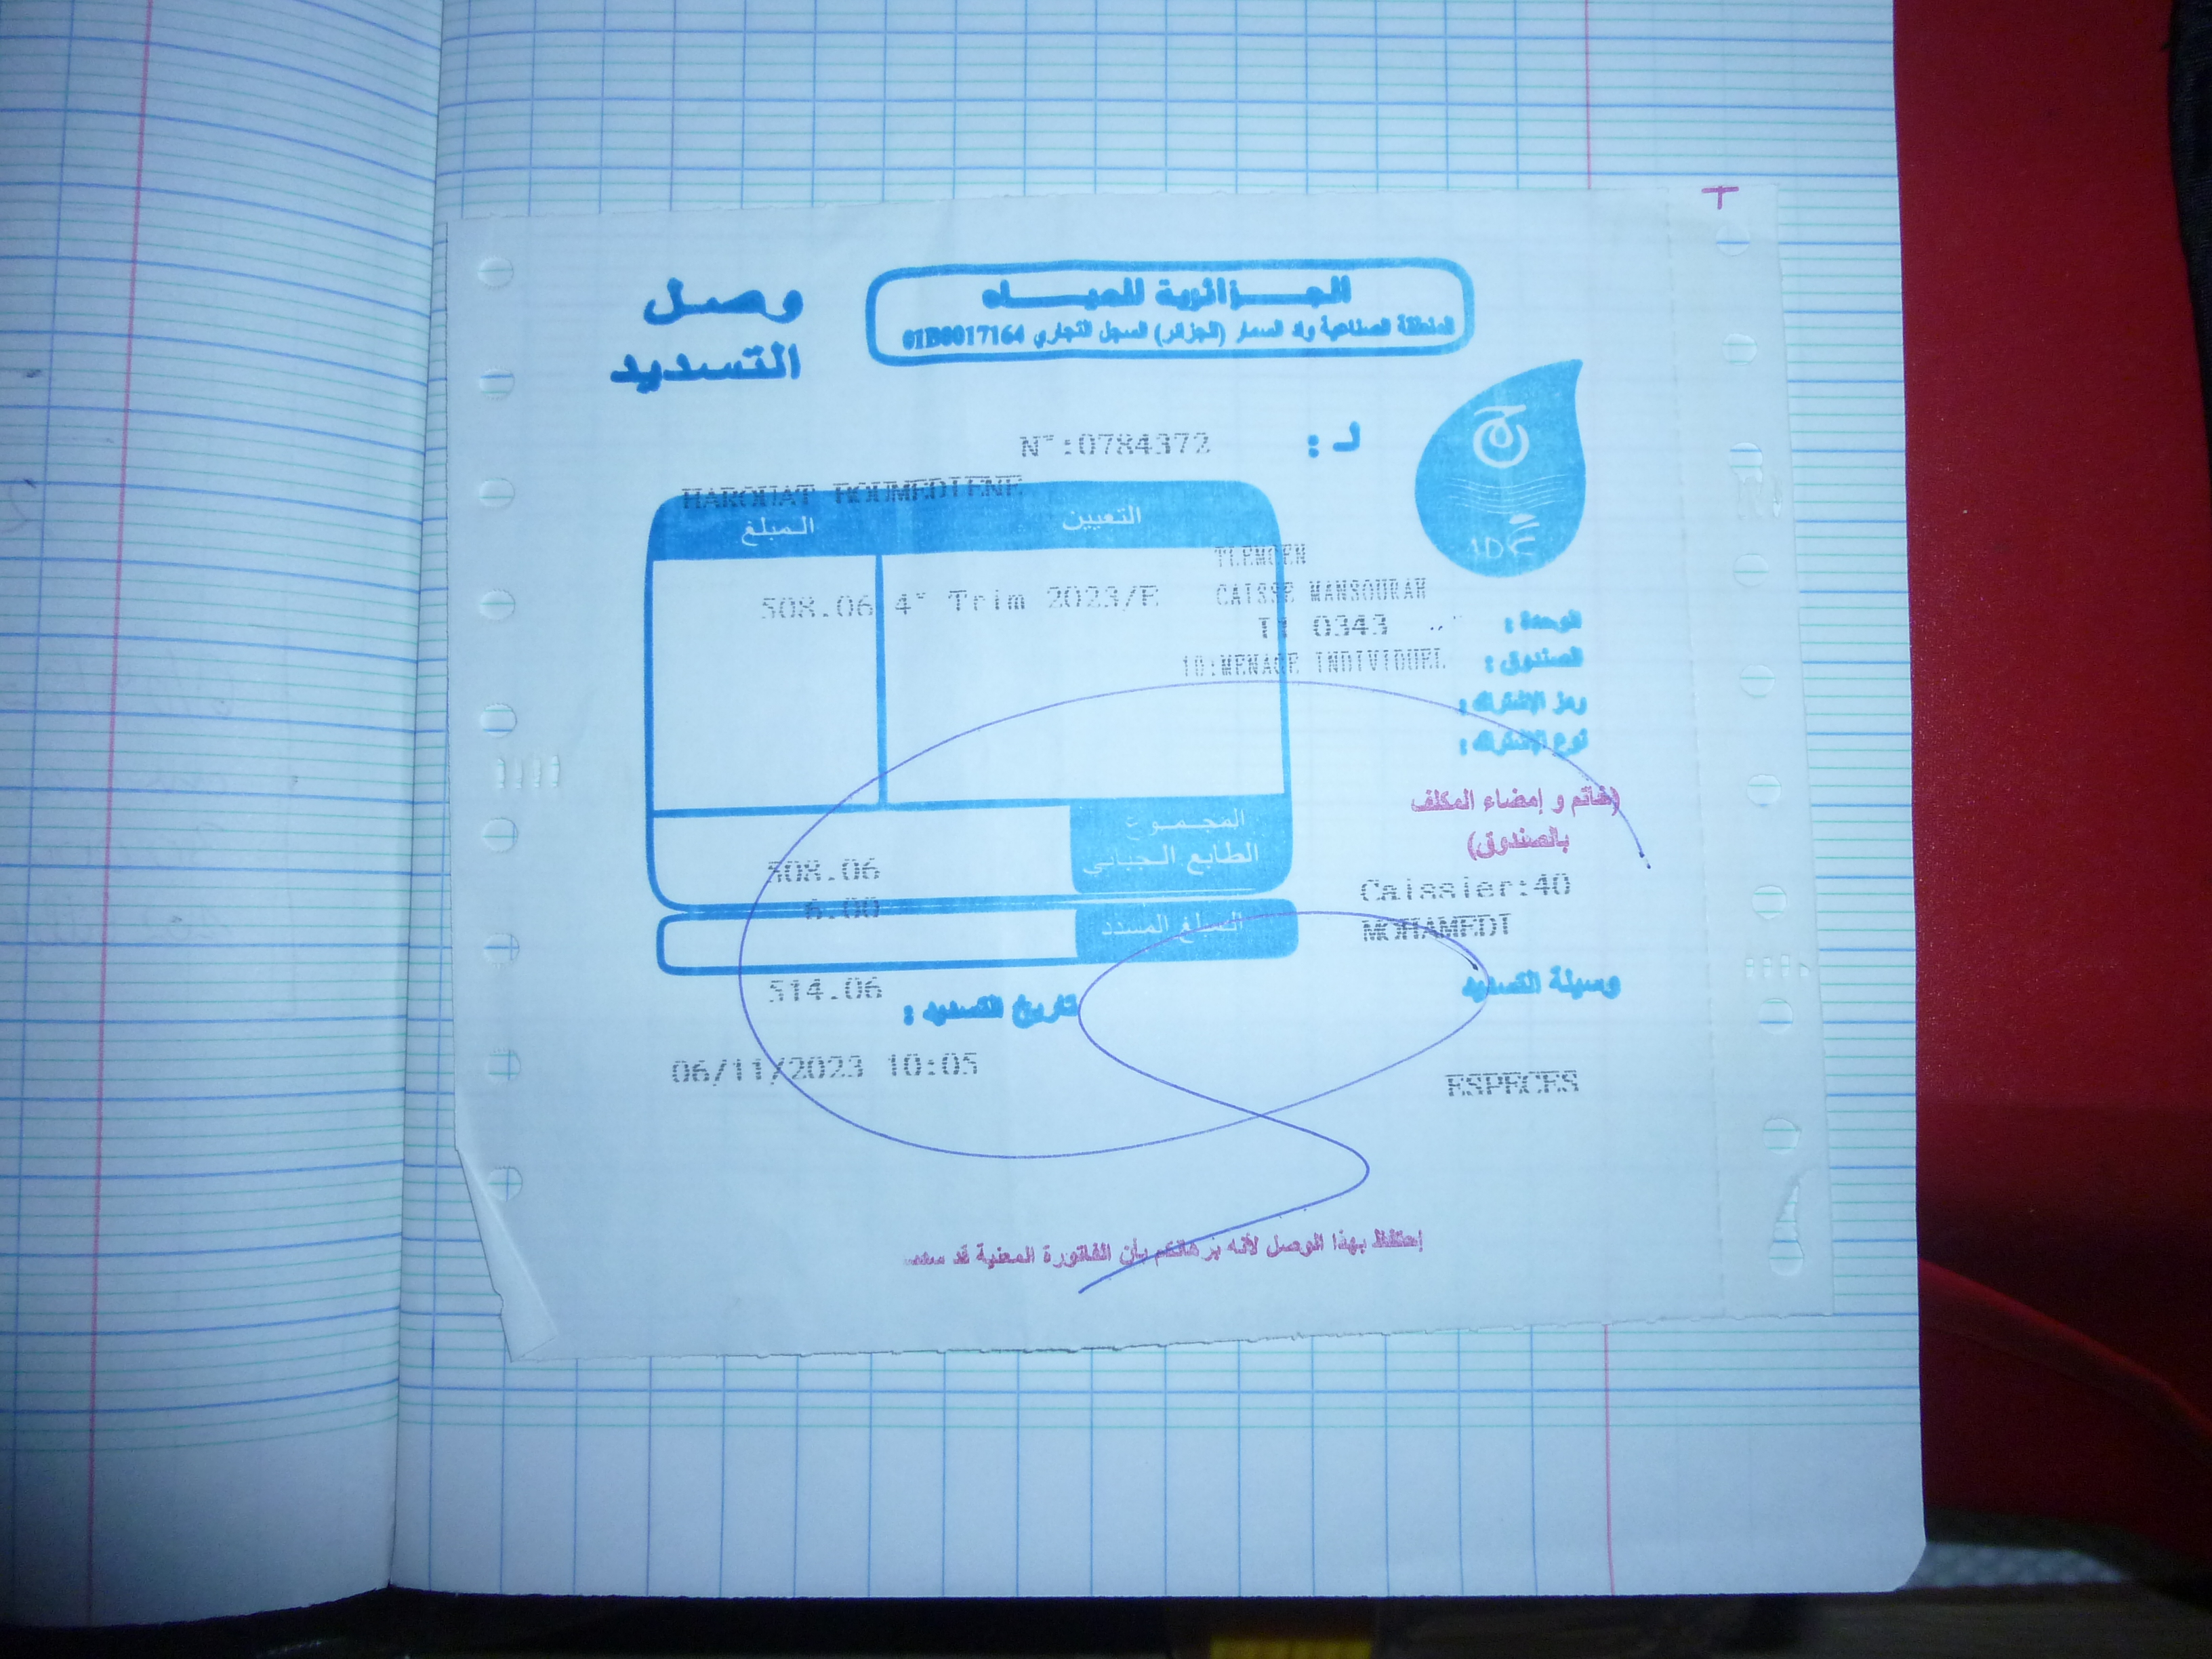 الجزائرية للمياه
المنطقة الصناعية واد السمار (الجزائر) السجل التجاري 01B0017164
وصل
التسديد
لـ :
N°:0784372
HAROUAT BOUMEDIENE
التعيين
المبلغ
TLEMCEN
CAISSE MANSOURAH
508.06 4° Trim 2023/E
0343
10:MENAGE INDIVIDUEL
الوحدة :
الصندوق :
رمز الإشتراك :
نوع الإشتراك :
(خاتم و إمضاء المكلف
بالصندوق)
المجموع
الطابع الجبايي
508.06
6.00
Caissier:40
MOHAMEDI
المبلغ المسدد
514.06
وسيلة التسديد
تاريخ التسديد :
06/11/2023 10:05
ESPECES
إحتفظ بهذا الوصل لأنه برهانكم بأن الفاتورة المعنية قد